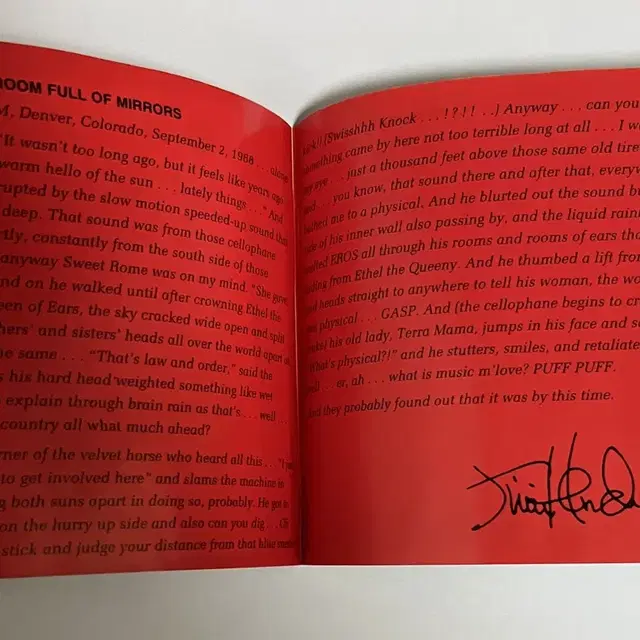 ROOM FULL OF MIRRORS
M, Denver, Colorado, September 2, 1968 . . . along
"It wasn't too long ago, but it feels like years ago
warm hello of the sun . . . lately things . . ." And
rupted by the slow motion speeded-up sound that
deep. That sound was from those cellophane
rtly, constantly from the south side of those
anyway Sweet Rome was on my mind. "She gave
nd on he walked until after crowning Ethel the
een of Ears, the sky cracked wide open and split
hers' and sisters' heads all over the world apart
he same . . . "That's law and order," said the
s his hard head weighted something like wet
explain through brain rain as that's . . . well . . .
country all what much ahead?
rner of the velvet horse who heard all this . . "I
to get involved here" and slams the machine
g both suns apart in doing so, probably. He got
on the hurry up side and also can you dig
stick and judge your distance from that blue
(Swisshhh Knock . . . ! ? ! ! . .) Anyway . . . can you
something came by here not too terrible long at all . . . I w
eye . . . just a thousand feet above those same old tire
and . . . you know, that sound there and after that, everyw
me to a physical. And he blurted out the sound b
of his inner wall also passing by, and the liquid rain
EROS all through his rooms and rooms of ears tha
from Ethel the Queeny. And he thumbed a lift from
heads straight to anywhere to tell his woman, the wo
physical . . . GASP. And (the cellophane begins to cr
his old lady, Terra Mama, jumps in his face and s
"What's physical?!" and he stutters, smiles, and retaliate
. . er, ah . . . what is music m'love? PUFF PUFF.
And they probably found out that it was by this time.